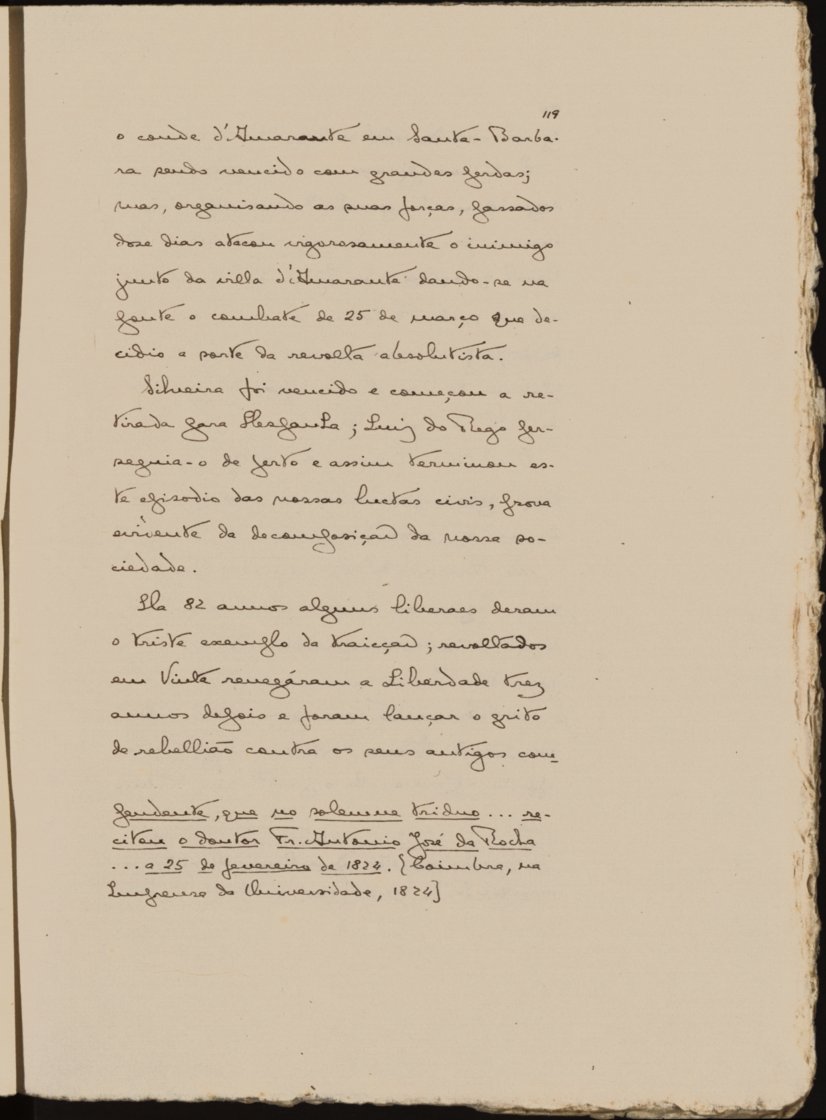 119
o conde d'Amarante em Santa-Barba-
ra sendo vencido com grandes perdas;
mas, organisando as suas forças, passados
dose dias atacou vigorosamente o inimigo
junto da villa d'Amarante dando-se na
ponte o combate de 25 de março que de-
cidio a sorte da revolta absolutista.
Silveira foi vencido e começou a re-
tirada para Hespanha; Luiz do Rego per-
seguia-o de perto e assim terminou es-
te episodio das nossas luctas civis, prova
evidente da decomposição da nossa so-
ciedade.
Ha 82 annos alguns liberaes deram
o triste exemplo da traicção; revoltados
em Vinte renegáram a Liberdade trez
annos depois e foram lançar o grito
de rebellião contra os seus antigos com-
pendente, que no solemne triduo... re-
citou o doutor Fr. Antonio José da Rocha
... a 25 de fevereiro de 1824. [Coimbra, na
Imprensa da Universidade, 1824]